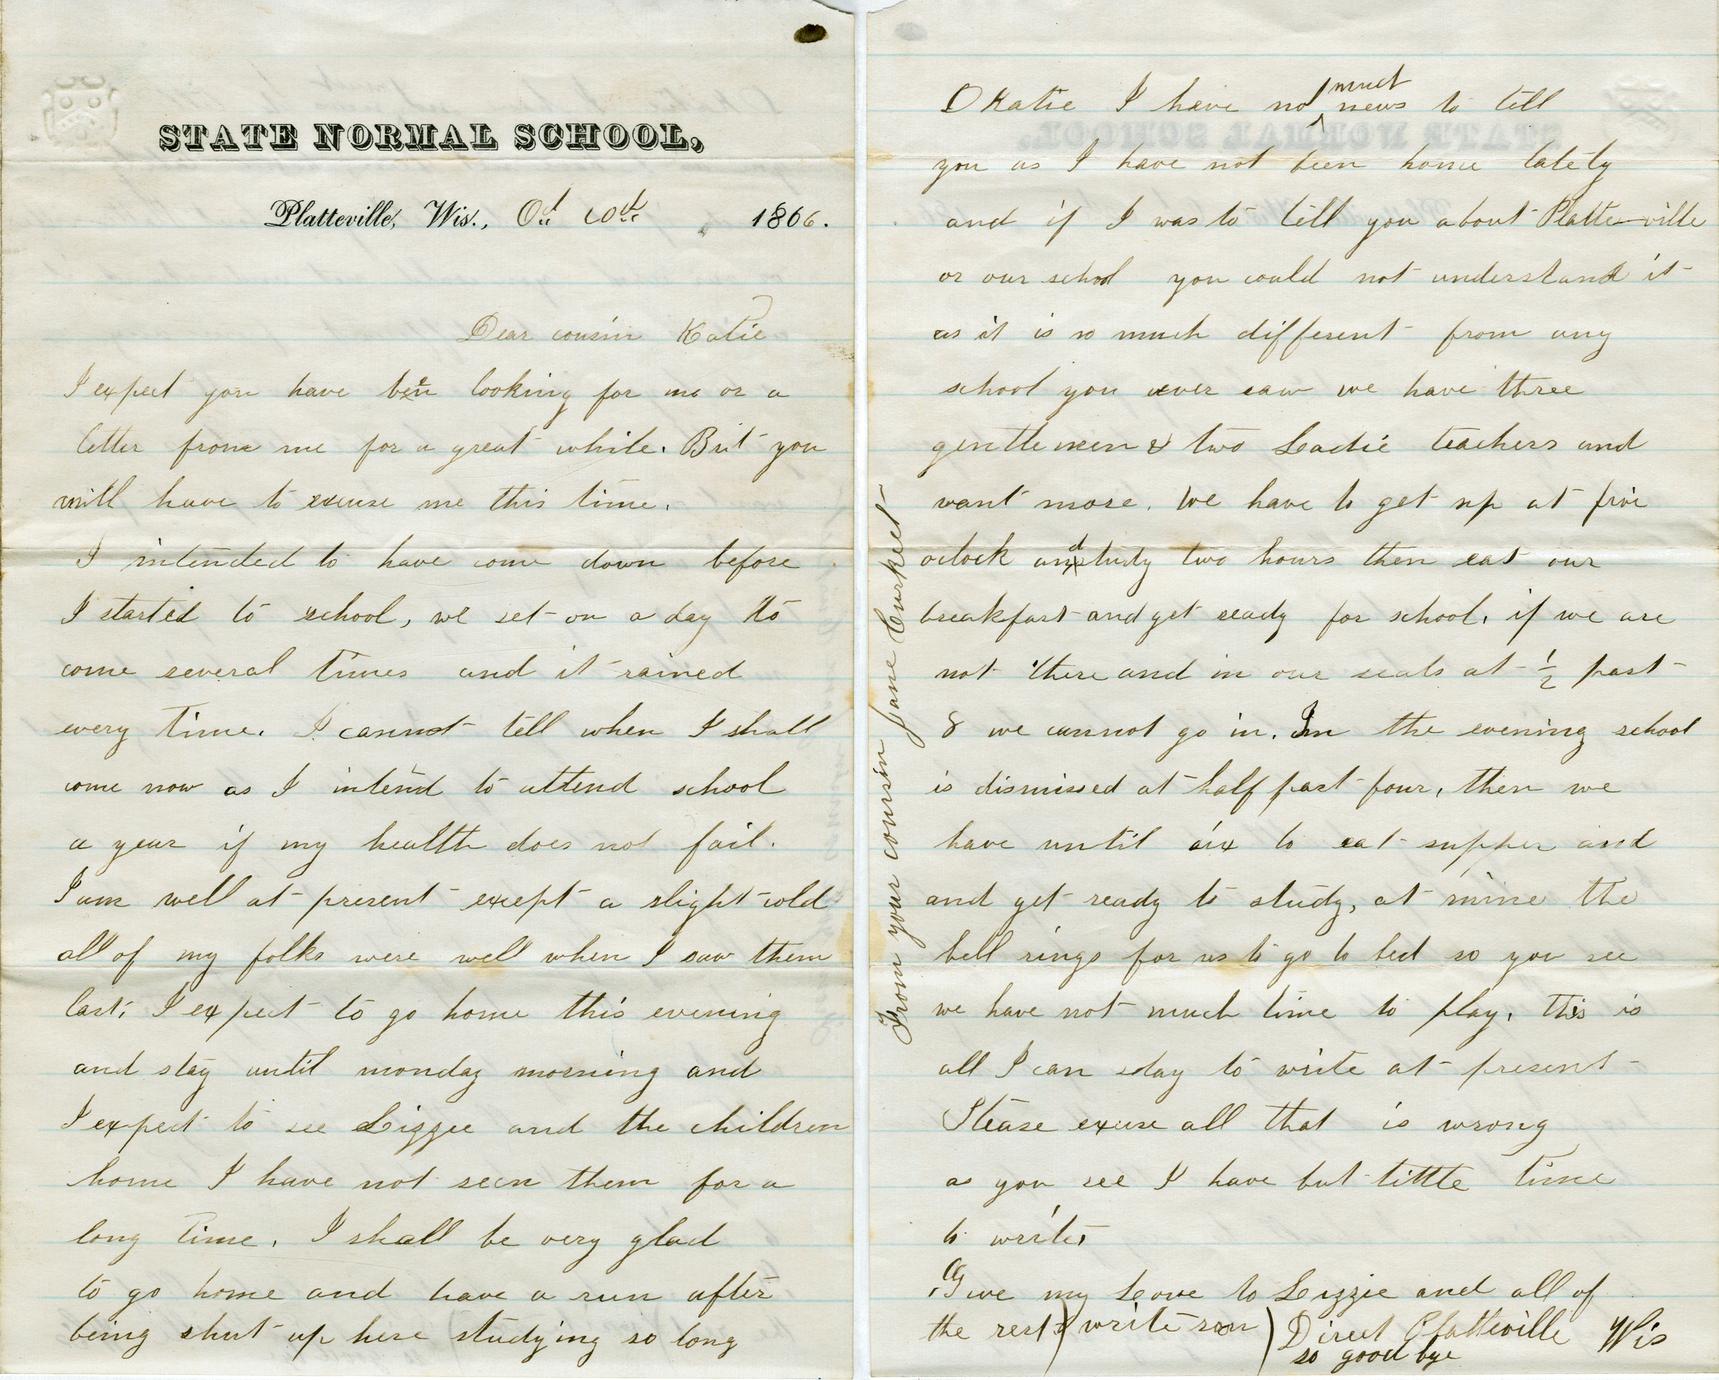 STATE NORMAL SCHOOL,
Platteville, Wis., Oct 10th 1866.
Dear cousin Katie
I expect you have been looking for me or a
letter from me for a great while. But you
will have to excuse me this time.
I intended to have come down before
I started to school, we set on a day to
come several times and it rained
every time. I cannot tell when I shall
come now as I intend to attend school
a year if my health does not fail.
I am well at present except a slight cold
all of my folks were well when I saw them
last, I expect to go home this evening
and stay until monday morning and
I expect to see Lizzie and the children
home I have not seen them for a
long time. I shall be very glad
to go home and have a run after
being shut up here studying so long
O Katie I have no much news to tell
you as I have not been home lately
and if I was to tell you about Platte-ville
or our school you could not understand it
as it is so much different from any
school you ever saw we have three
gentlemen & two Ladie teachers and
want more. We have to get up at five
oclock and study two hours then eat our
breakfast and get ready for school. if we are
not there and in our seats at ½ past
8 we cannot go in. In the evening school
is dismissed at half past four, then we
have until six to eat supper and
and get ready to study, at nine the
bell rings for us to go to bed so you see
we have not much time to play. this is
all I can stay to write at present
Please excuse all that is wrong
as you see I have but little time
to write,
Give my Love to Lizzie and all of
the rest (write soon) Direct Platteville Wis
so good bye
From your coursin Jane